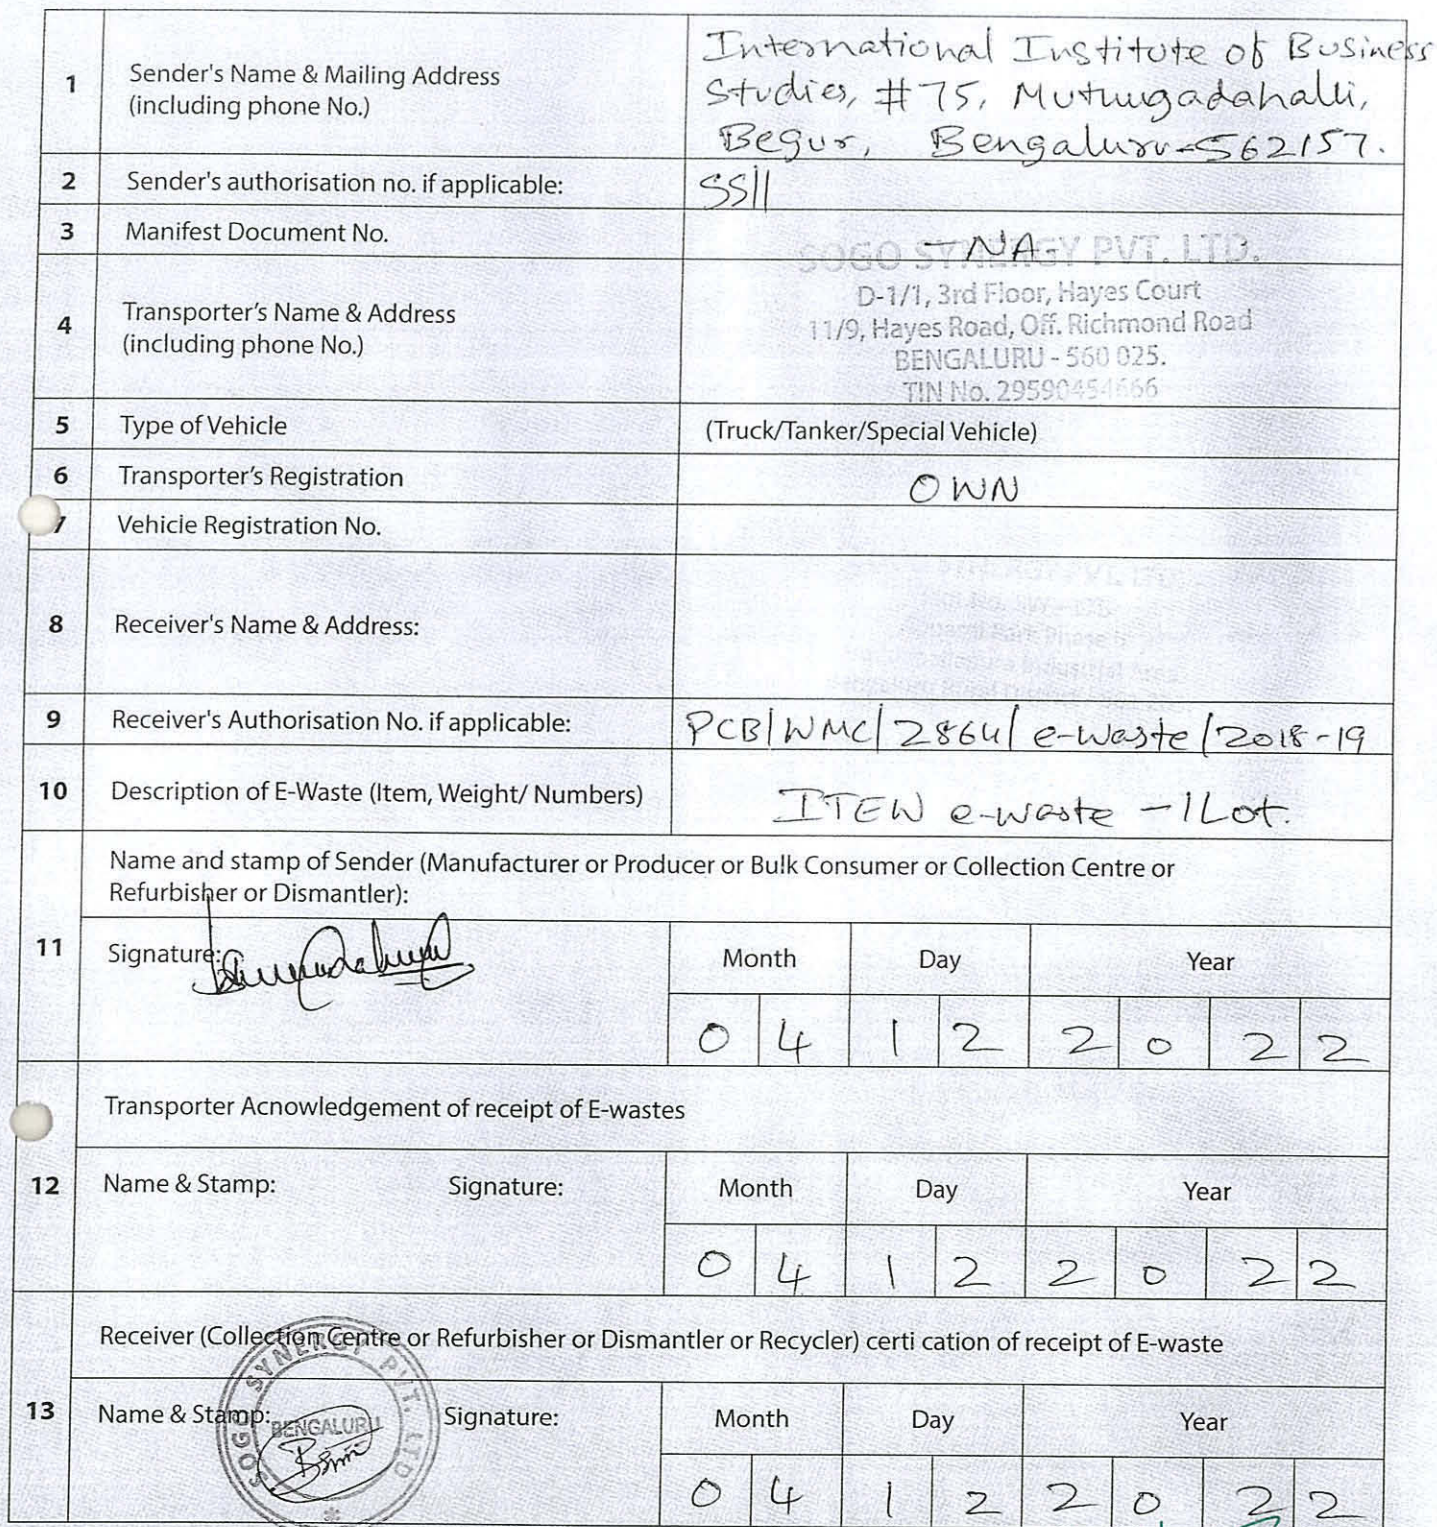 1
Sender's Name & Mailing Address
(including phone No.)
International Institute of Business
Studies, #75, Muthugadahalli,
Begur, Bengaluru-562157.
2
Sender's authorisation no. if applicable:
3
Manifest Document No.
- NA -
4
Transporter's Name & Address
(including phone No.)
SOGO SYNERGY PVT. LTD.
D-1/1, 3rd Floor, Hayes Court
11/9, Hayes Road, Off. Richmond Road
BENGALURU - 560 025.
TIN No. 29590454666
5
Type of Vehicle
(Truck/Tanker/Special Vehicle)
6
Transporter's Registration
OWN
7
Vehicie Registration No.
8
Receiver's Name & Address:
SYNERGY PVT. LTD.
9
Receiver's Authorisation No. if applicable:
PCB|WMC|2864| e-waste |2018-19
10
Description of E-Waste (Item, Weight/ Numbers)
ITEW e-waste - 1 Lot.
11
Name and stamp of Sender (Manufacturer or Producer or Bulk Consumer or Collection Centre or
Refurbisher or Dismantler):
Signature:
Month Day Year
0 4 1 2 2 0 2 2
12
Transporter Acnowledgement of receipt of E-wastes
Name & Stamp: Signature:
Month Day Year
0 4 1 2 2 0 2 2
13
Receiver (Collection Centre or Refurbisher or Dismantler or Recycler) certi cation of receipt of E-waste
Name & Stamp: Signature:
SOGO SYNERGY PVT. LTD
BENGALURU
Month Day Year
0 4 1 2 2 0 2 2